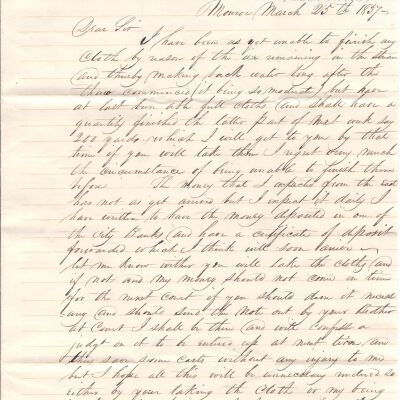 Monroe March 25th 1857
Dear Sir
I have been as yet unable to finish any
Cloth by reason of the ice remaining in the stream
and thereby making back water long after the
thaw commenced, it being so moderate, but have
at last been able full cloths and shall have a
quantity finished the latter part of next week say
200 yards which I will get to you by that
time if you will take them I regret very much
the circumstance of being unable to finish them
before The money that I expected from the
has not as yet arrived but I expect it daily I
have written to have the money deposited in one of
the City Banks and have a certificate of deposit
forwarded which I think will soon arrive
let me know wither you will take the cloths and
if not and my money should not come in time
for the next Court if you should deem it necess
ary and should send the note out by your Brother
at Court I shall be there and will confess a
judgt on it to be entered up at next term, and
thus save some costs without any injury to me
but I hope all this will be unnecessary
either by your taking the cloth or my being